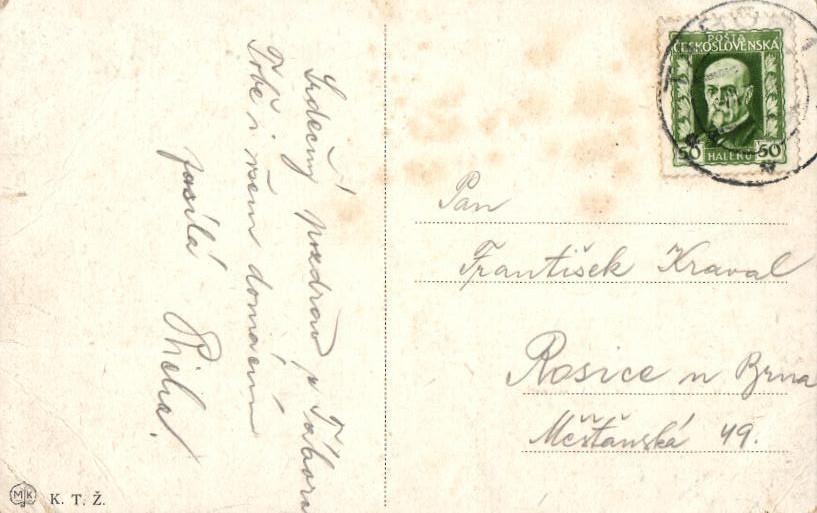 Srdečný pozdrav z Tábora
Tobě i všem domácím
posílá
POŠTA
ČESKOSLOVENSKÁ
50 HALÉŘŮ 50
Pan
František Kraval
Rosice u Brna
Měšťanská 49.
MK K. T. Ž.